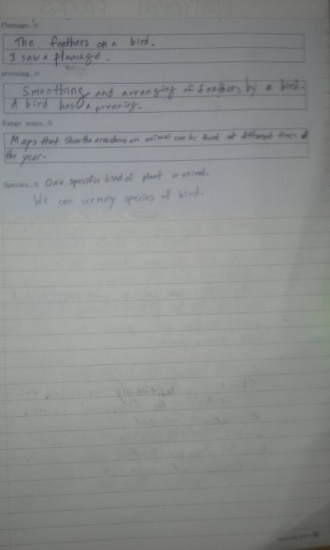 Plumage.
The feathers on a bird.
I saw a plumage.
preening.
Smoothing and arranging of feathers by a bird.
A bird has a preening.
Range maps.
Maps that show the areas an animal can be found at different times of
the year.
Species. One specific kind of plant or animal.
We can see many species of bird.